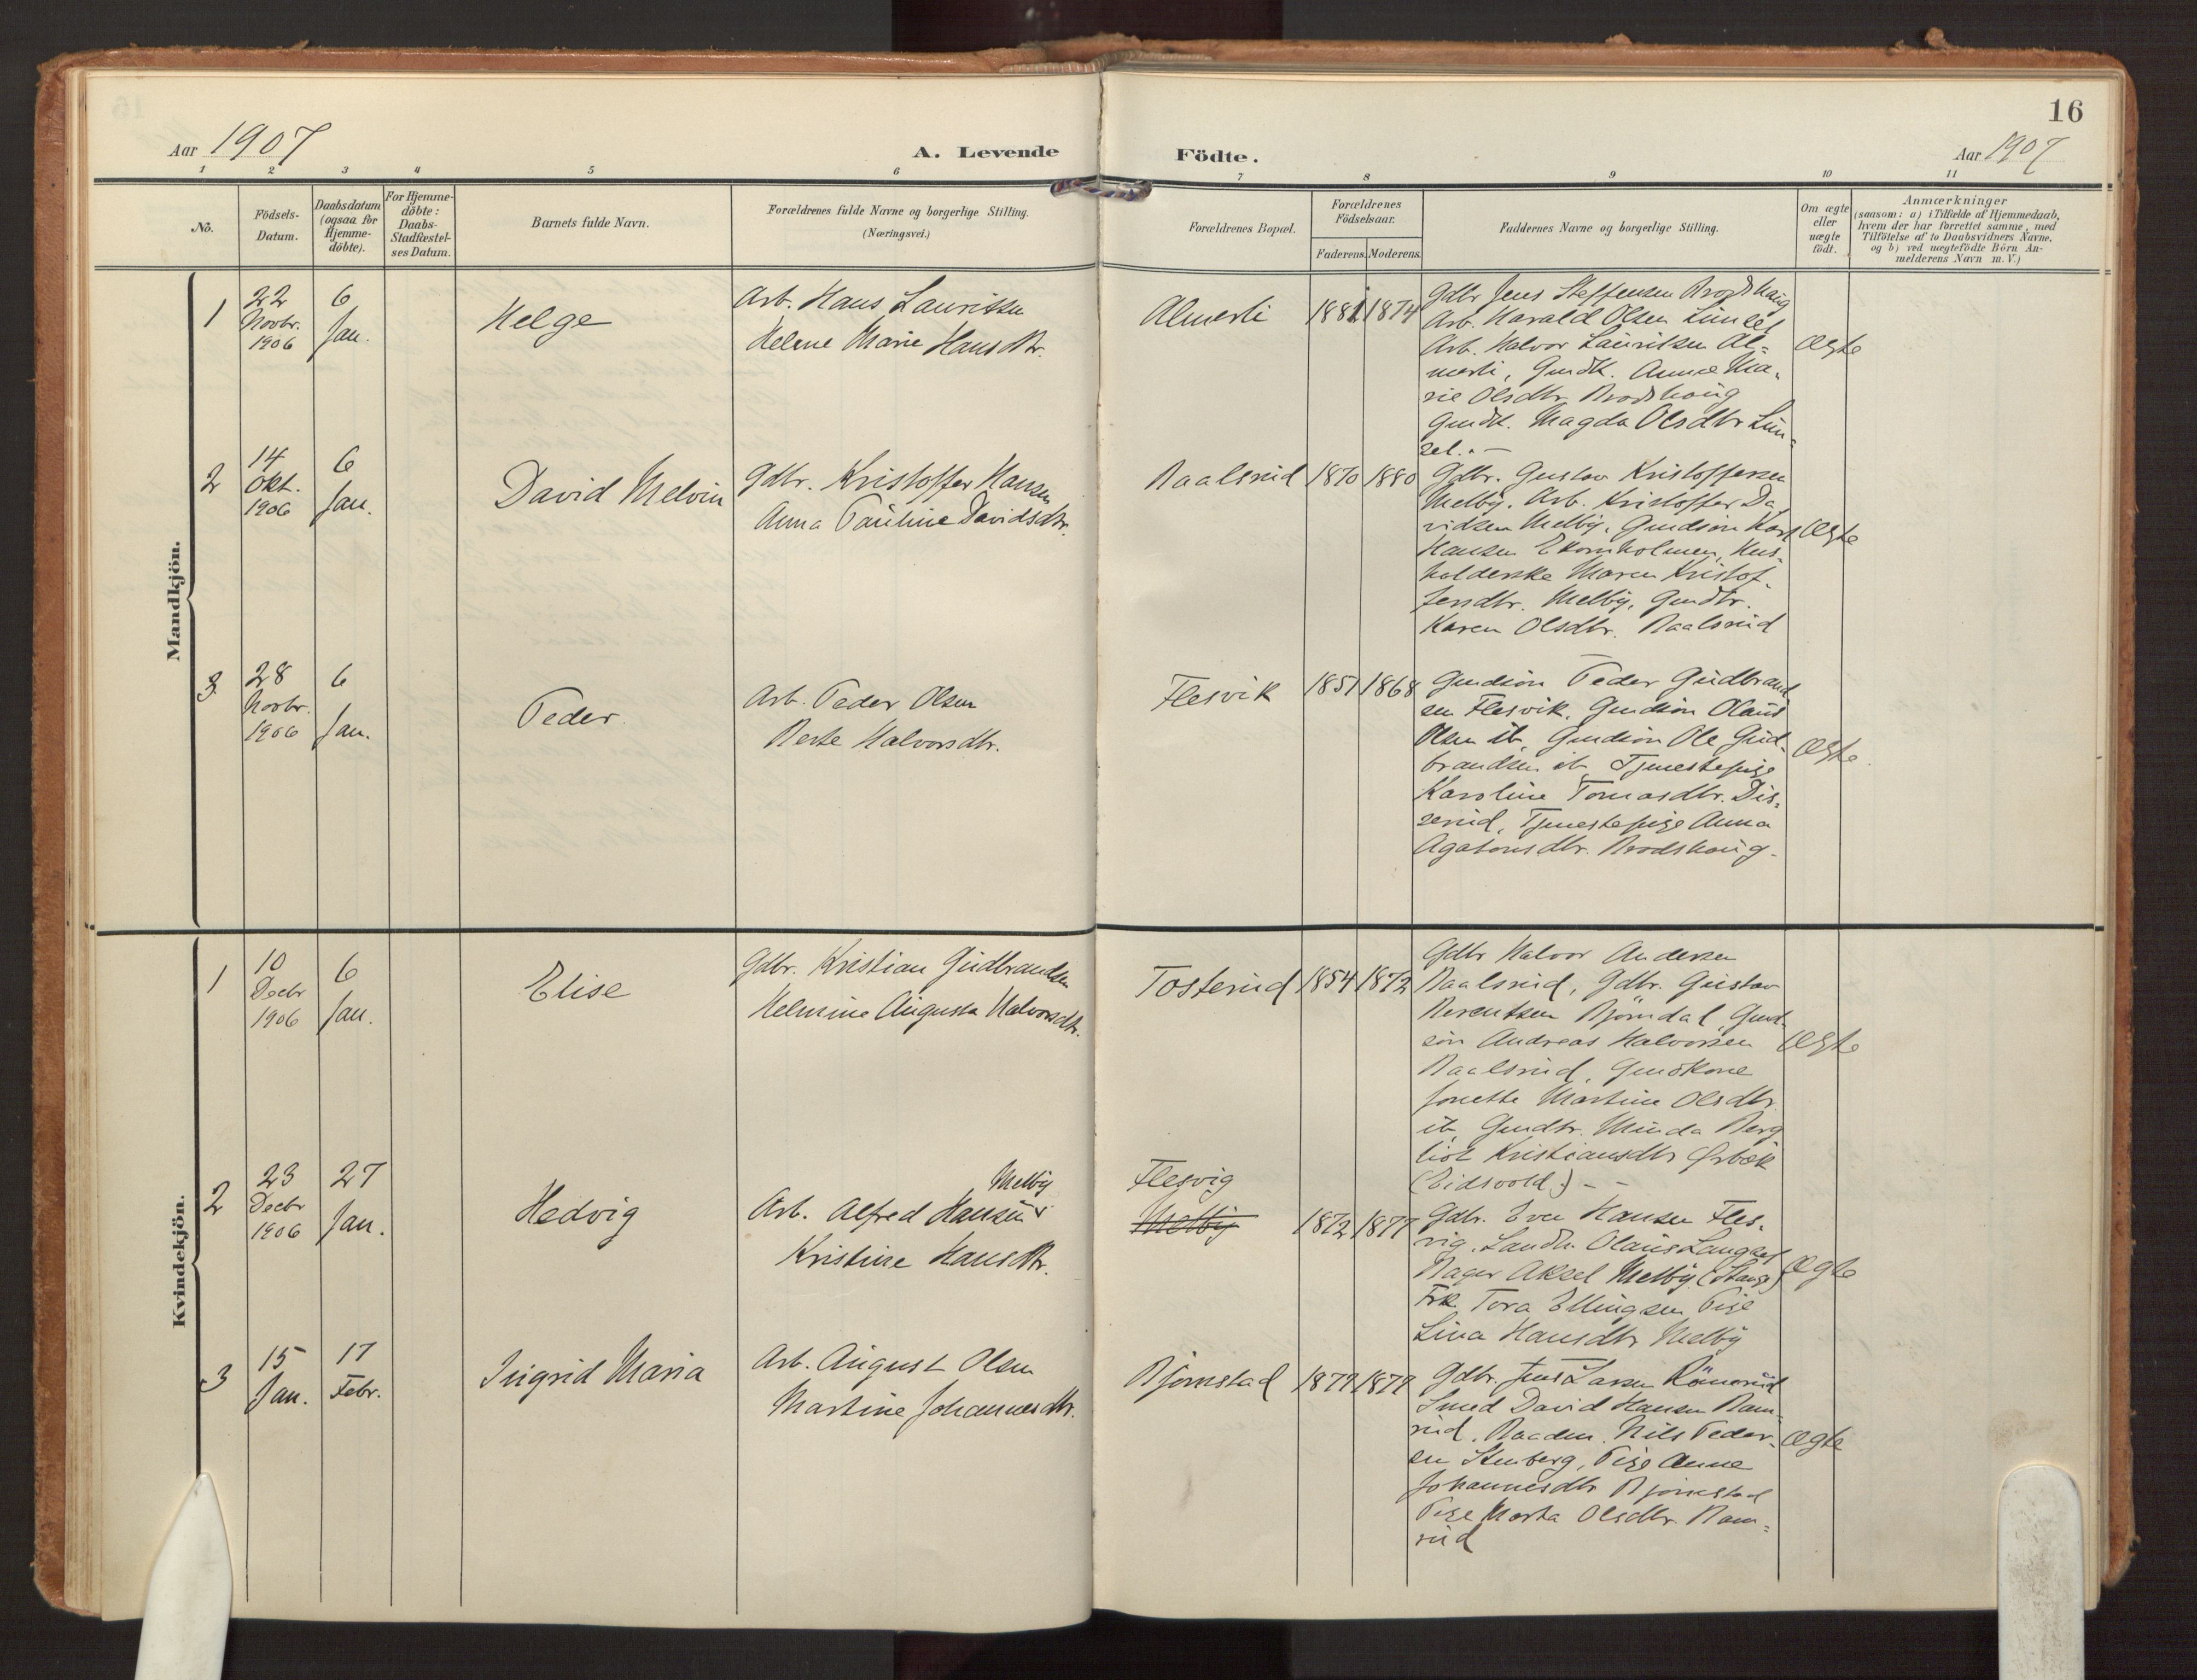 16
Aar 1907
A. Levende
Födte.
Aar 1907
1 2 3 4 5 6 7 8 9 10 11
No.
Födsels-
Datum.
Daabsdatum
(ogsaa for
Hjemme-
döbte).
For Hjemme-
döbte:
Daabs-
Stadfæstel-
ses Datum.
Barnets fulde Navn.
Forældrenes fulde Navne og borgerlige Stilling.
(Næringsvei.)
Forældrenes Bopæl.
Forældrenes
Födselsaar.
Faderens. Moderens.
Faddernes Navne og borgerlige Stilling.
Om ægte
eller
uægte
födt.
Anmærkninger
(saasom: a) i Tilfælde af Hjemmedaab,
hvem der har forrettet samme, med
Tilföielse af to Daabsvidners Navne,
og b) ved uægtefödte Börn An-
melderens Navn m. V.)
Mandkjön.
1
22
Novbr.
1906
6
Jan.
Helge
Arb. Hans Lauritsen
Helene Marie Hansdtr.
Almerli
1881 1874
Gdbr Jens Steffensen Brodshaug
Arb. Harald Olsen Lunset
Arb. Halvor Lauritsen Al-
merli, Gmdk. Anne Ma-
rie Olsdtr Brodshaug
Gmdk. Magda Olsdtr Lun-
set. -
Ægte
2
14
Okt.
1906
6
Jan.
David Melvin
Gdbr. Kristoffer Hansen
Anna Pauline Davidsdtr.
Baalsrud
1870 1880
Gdbr. Gustav Kristoffersen
Melby. Arb. Kristoffer Da-
vidsen Melby, Gmdsön Karl
Hansen Ekornholmen, Hus-
holderske Maren Kristof-
fersdtr. Melby, Gmdtr.
Karen Olsdtr. Baalsrud
Ægte
3
28
Novbr.
1906
6
Jan.
Peder.
Arb. Peder Olsen
Berte Halvorsdtr.
Flesvik
1851 1868
Gmdsön Peder Gudbrand
sen Flesvik, Gmdsön Olaus
Olsen ib, Gmdsön Ole Gud-
brandsen ib Tjenestepige
Karoline Tomasdtr. Dis-
serud, Tjenestepige Anna
Agatonsdtr. Brodshaug -
Ægte
Kvindekjön.
1
10
Decbr
1906
6
Jan.
Elise
Gdbr. Kristian Gudbrandsen
Helmine Augusta Halvorsdtr.
Tosterud
1854 1872
Gdbr Halvor Andersen
Baalsrud, Gdbr. Gustav
Berentsen Björndal, Gmd-
sön Andreas Halvorsen
Baalsrud, Gmdkone
Jonette Martine Olsdtr
ib, Gmdtr. Minda Berg
liot Kristiansdtr Ørbæk
(Eidsvold.) - -
Ægte
2
23
Decbr
1906
27
Jan.
Hedvig
Melby
Arb. Alfred Hansen
Kristine Hansdtr.
Flesvig
Melby
1872 1877
Gdbr. Even Hansen Fles-
vig, Landh. Olaus Langset
Bager Aksel Melby (Stange)
Frk. Tora Ellingsen Pige
Lina Hansdtr Melby
Ægte
3
15
Jan.
17
Febr.
Ingrid Maria
Arb. August Olsen
Martine Johannesdtr.
Björnstad
1879 1879
Gdbr. Jens Larsen Römerud
Smed David Hansen Ram-
rud, Baadm. Nils Peder-
sen Stenberg, Pige Anne
Johannesdtr Björnstad
Pige Marta Olsdtr. Ram-
rud
Ægte